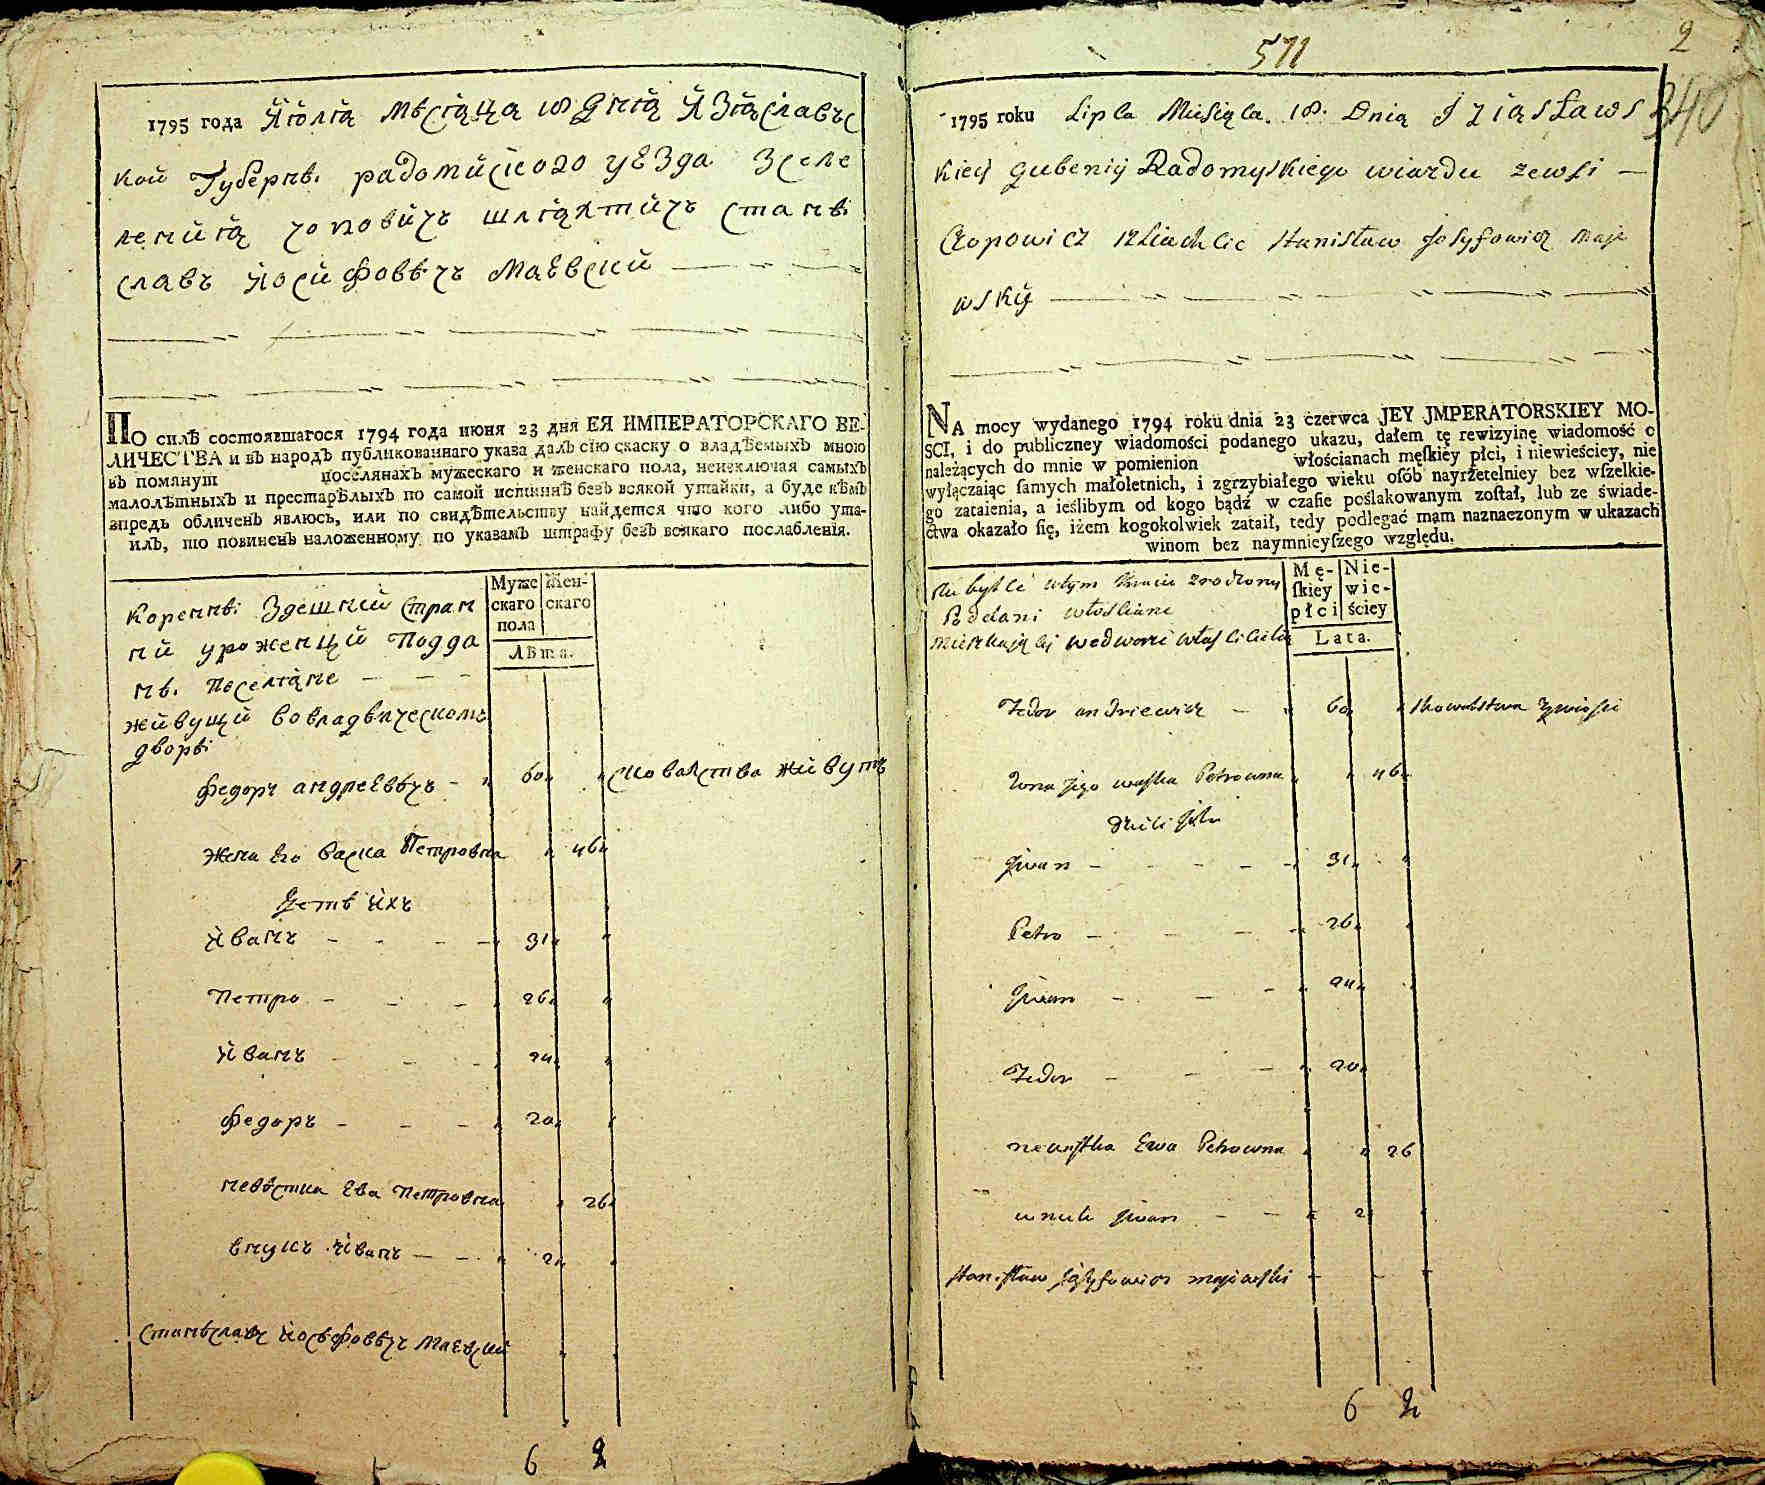 1795 года Июлїя мѣсяца 18 дня Изяславъс
кой Губернѣ. радомиского уезда з селе
ления Чоповичъ шляхтичъ Станѣ
славъ Иосифовѣчъ Маевский
ПО силѣ состоявшагося 1794 года июня 23 дня ЕЯ ИМПЕРАТОРСКАГО ВЕ-
ЛИЧЕСТВА и въ народъ публикованнаго указа далъ сїю скаску о владѣемыхъ мною
въ помянут поселянахъ мужескаго и женскаго пола, неисключая самыхъ
малолѣтныхъ и престарѣлыхъ по самой истиннѣ безъ всякой утайки, а буде кѣмъ
впредь обличенъ явлюсь, или по свидѣтельству найдется что кого либо ута-
илъ, то повиненъ наложенному по указамъ штрафу безъ всякаго послабленїя.
Муже
скаго
пола
Жен-
скаго
Лѣта.
Кореннѣ здешний стран
ний уроженций подда
нѣ. поселяне
живущи во владѣлческомъ
дворѣ
федоръ андреевѣчъ 60 сковалства живутъ
жена его васка Петровна 46
Детѣ ихъ
Иванъ 31
Петро 26
Иванъ 24
федоръ 20
невѣстка Ева Петровна 26
внукъ Иванъ 2
Станѣславъ Иосѣфовѣчъ Маевский
6 2
2
511
340
1795 roku Lipca Miesiąca. 18. Dnią Iziasławs
kiey Gubenij Radomyskiego wiazdu zewsi
Czopowicz szliachcic Stanisław Josyfowicz Maje
wskij
NA mocy wydanego 1794 roku dnia 23 czerwca JEY JMPERATORSKIEY MO-
SCI, i do publiczney wiadomości podanego ukazu, dałem tę rewizyinę wiadomość o
należących do mnie w pomienion włościanach męſkiey płci, i niewieściey, nie
wyłączaiąc ſamych małoletnich, i zgrzybiałego wieku oſób nayrzetelniey bez wſzelkie-
go zataienia, a ieślibym od kogo bądź w czaſie poślakowanym zoſtał, lub ze świade-
ctwa okazało ſię, iżem kogokolwiek zataił, tedy podlegać mam naznaczonym w ukazach
winom bez naymnieyſzego względu.
Mę-
ſkiey
płci
Nie-
wie-
ściey
Lata.
wtym kraiu zrodzony
Poddani włosciane
Mieszkaiącij wedworze własciciela
Fedor andriewicz 60 skowalstwa żywiosie
żona jego waska Petrowna 46
dzieci ich
Jwan 31
Petro 26
Jwan 24
Fedor 20
newistka Ewa Petrowna 26
wnuk Jwan 2
Stanisław Józyfowicz majewski
6 2